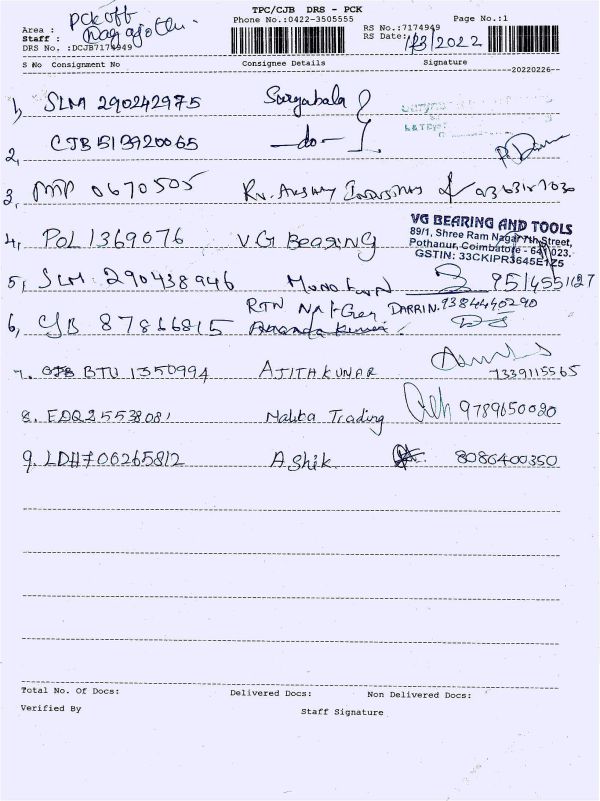 TPC/CJB DRS - PCK
Phone No.:0422-3505555 Page No.:1
Area : PCK off
Staff :
DRS No. :DCJB7174949
RS No.:7174949
RS Date: 1/3/2022
S No Consignment No Consignee Details Signature
20220226
1, SLM 290242975 Suryabala
2, CJB 513920065 -do-
3, 0670505
4, POL 1369076 V.G Bearing
VG BEARING AND TOOLS
89/1, Shree Ram Nagar 7th Street,
Pothanur, Coimbatore - 641 023.
GSTIN: 33CKIPR3645E1Z5
5, SLM 290438946 9514551127
6, CJB 87866815 RTN DARRIN. 9384440290
7. BTU 1350994 AJITHKUMAR 7339115565
8. EDQ25538081 Malika Trading 9789650080
9. LDH706265812 Ashik 8086400350
Total No. Of Docs: Delivered Docs: Non Delivered Docs:
Verified By Staff Signature